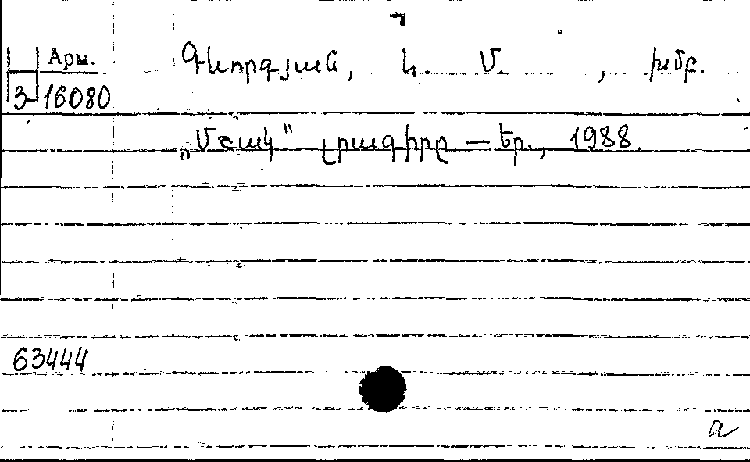 Арм. Գևորգյան, Ն. Մ. , խմբ.
3-16080
„Մշակ" լրագիրը — Եր., 1988.
63444
a